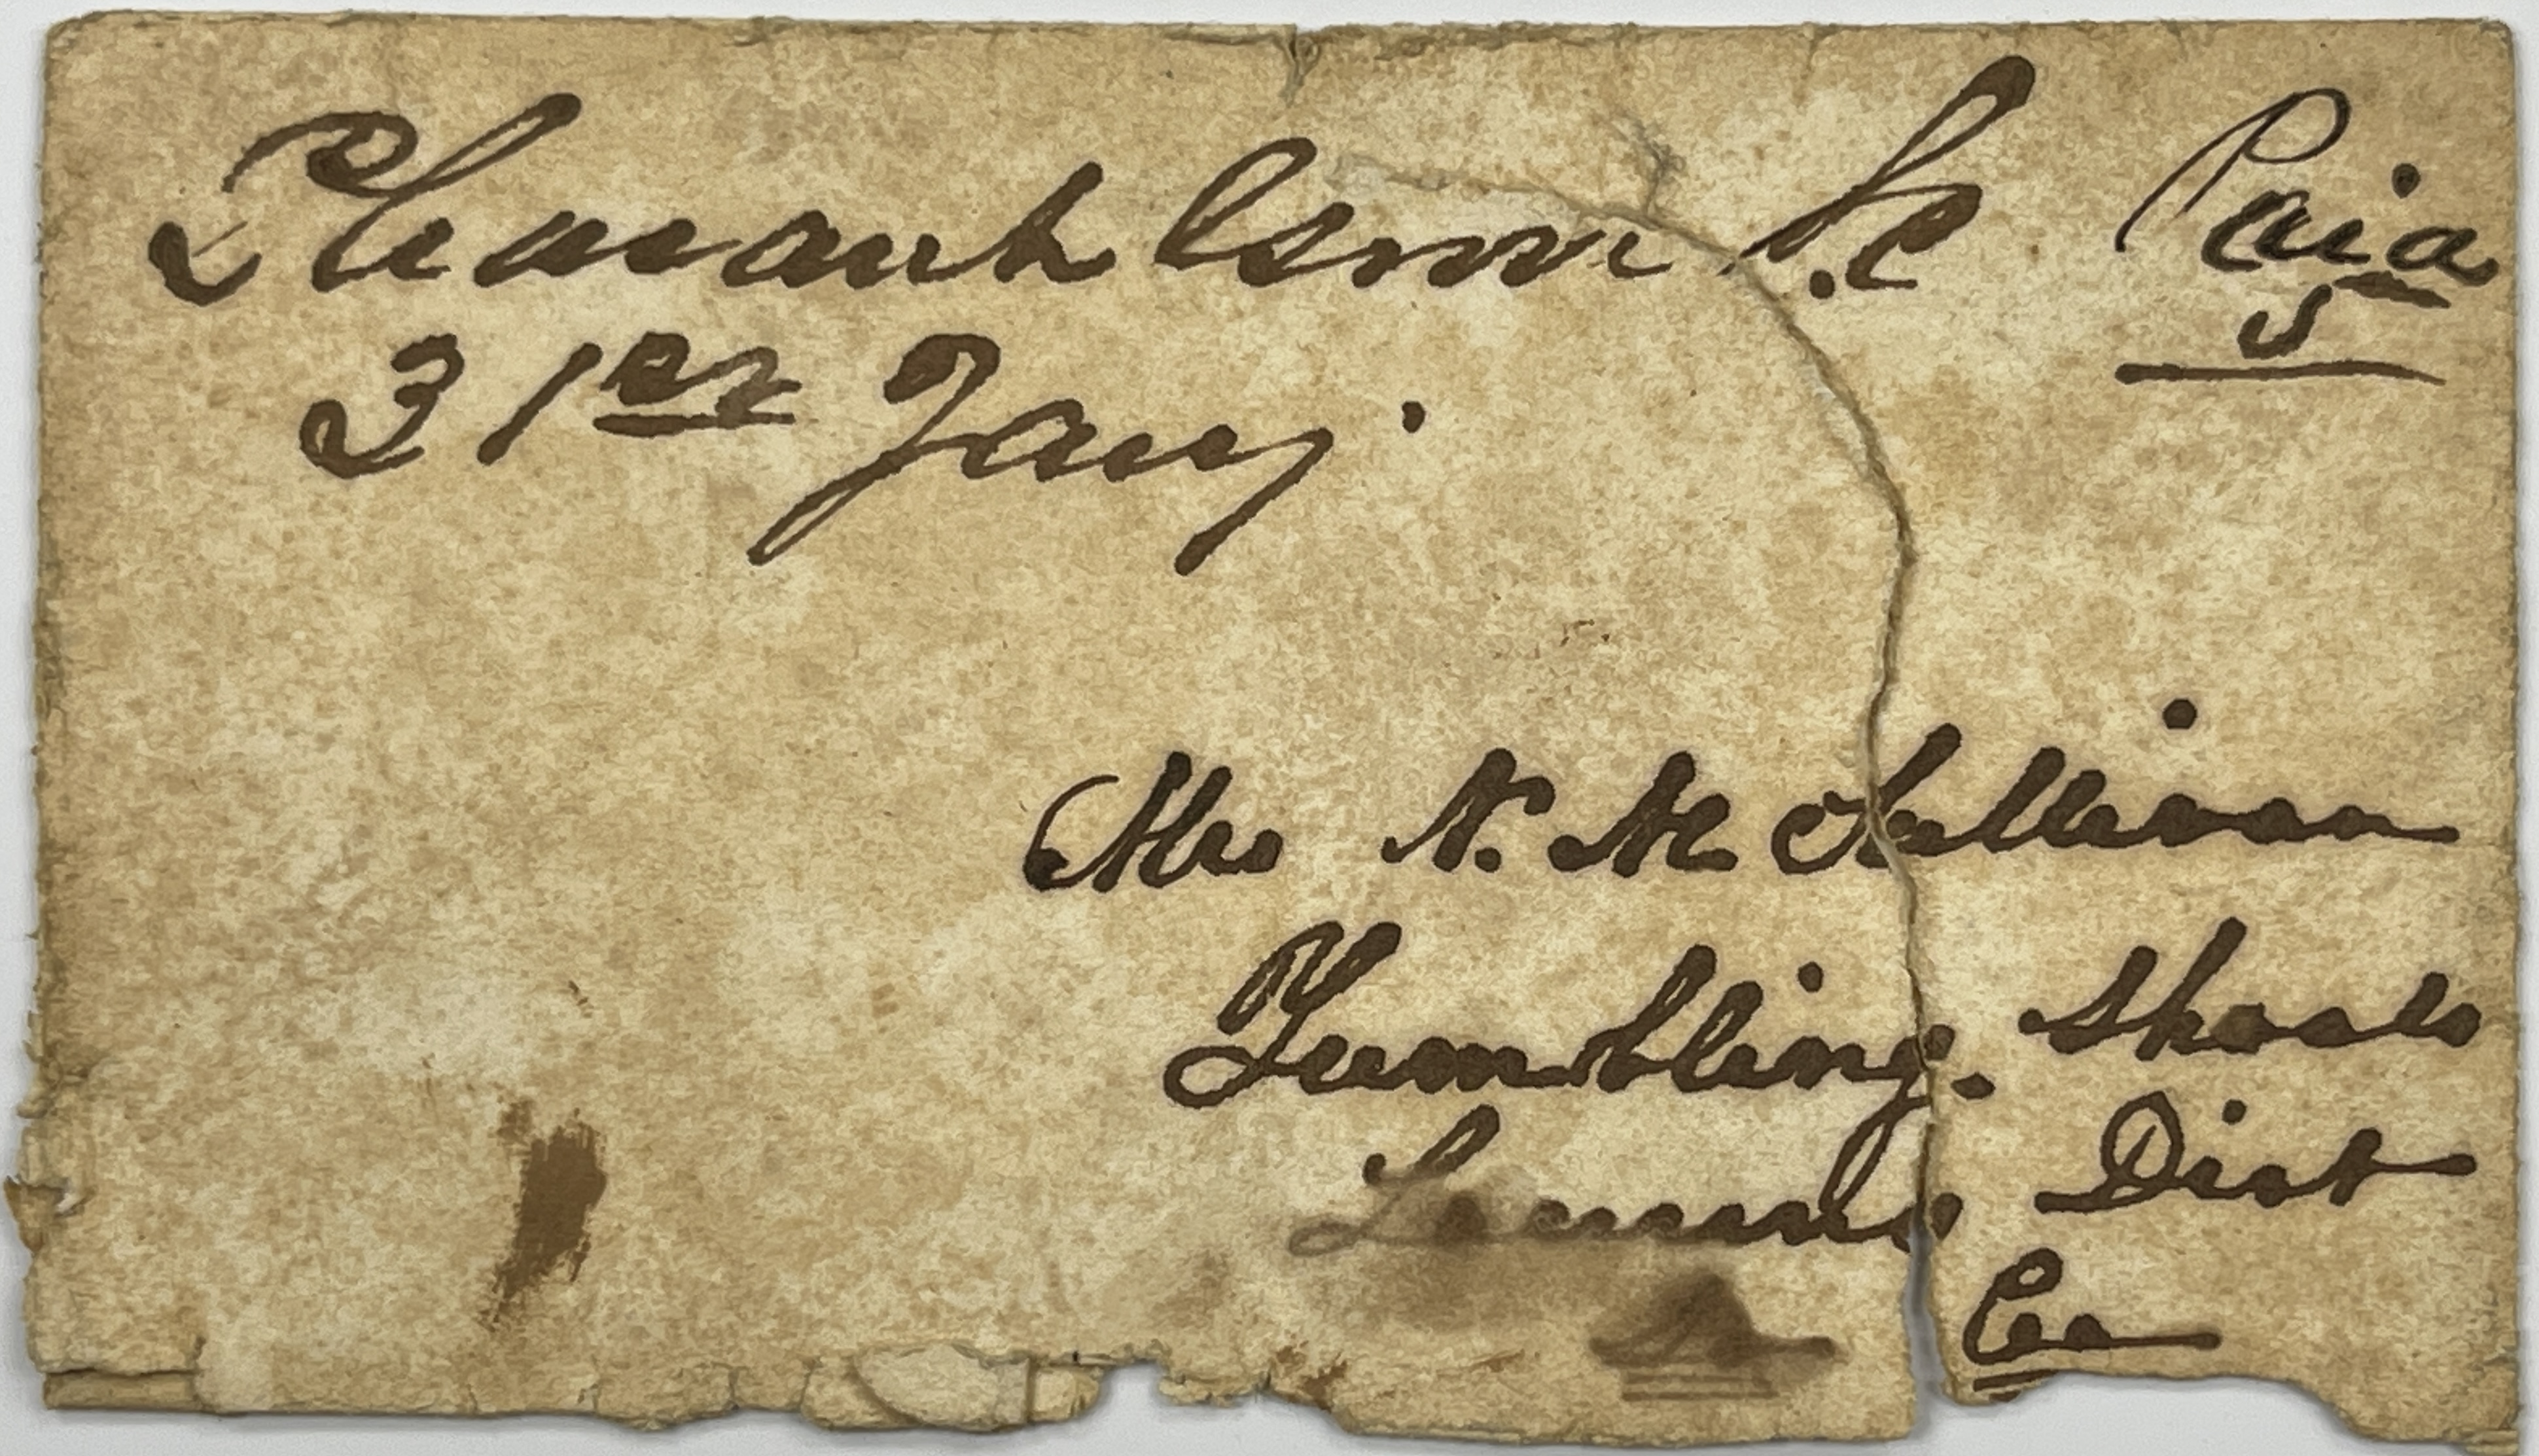 Pleasant S.C Paid
5
31st Jany.
Mrs N. M. Sullivan
Tumbling Shoals
Laurens Dist
Ca